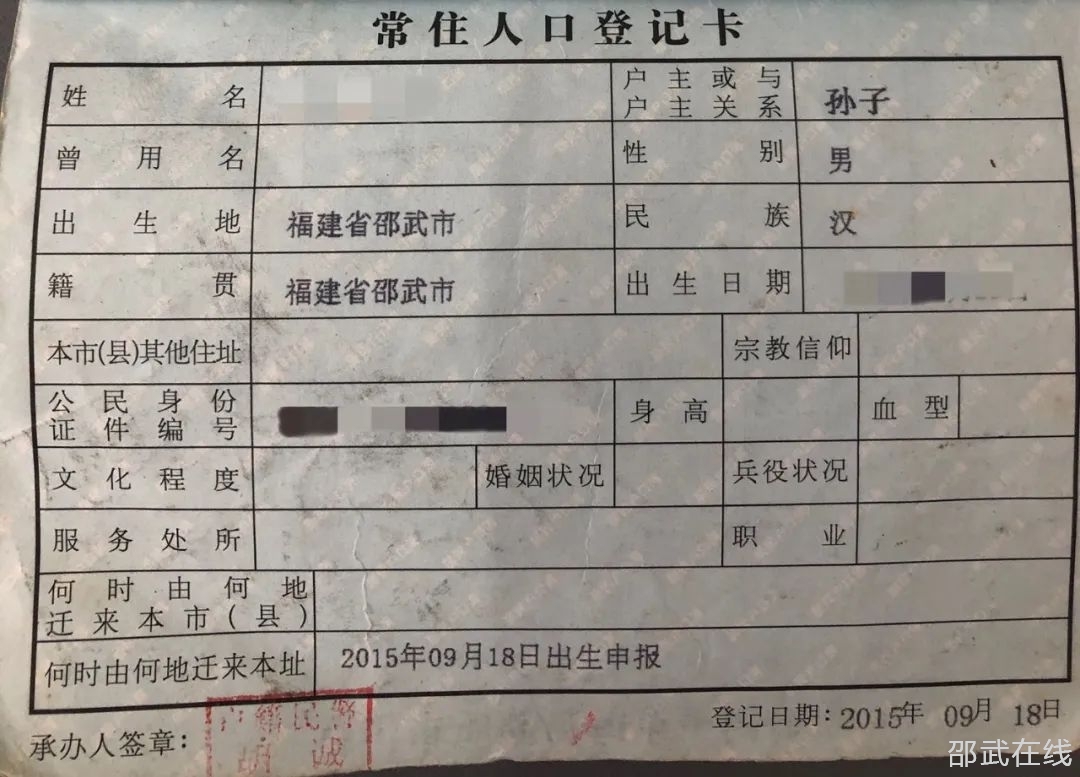 常住人口登记卡
姓名
户主或与
户主关系
孙子
曾用名
性别
男
出生地
福建省邵武市
民族
汉
籍贯
福建省邵武市
出生日期
本市(县)其他住址
宗教信仰
公民身份
证件编号
身高
血型
文化程度
婚姻状况
兵役状况
服务处所
职业
何时由何地
迁来本市(县)
何时由何地迁来本址
2015年09月18日出生申报
承办人签章:
户籍民警
诚
登记日期:2015年 09月 18日
邵武在线